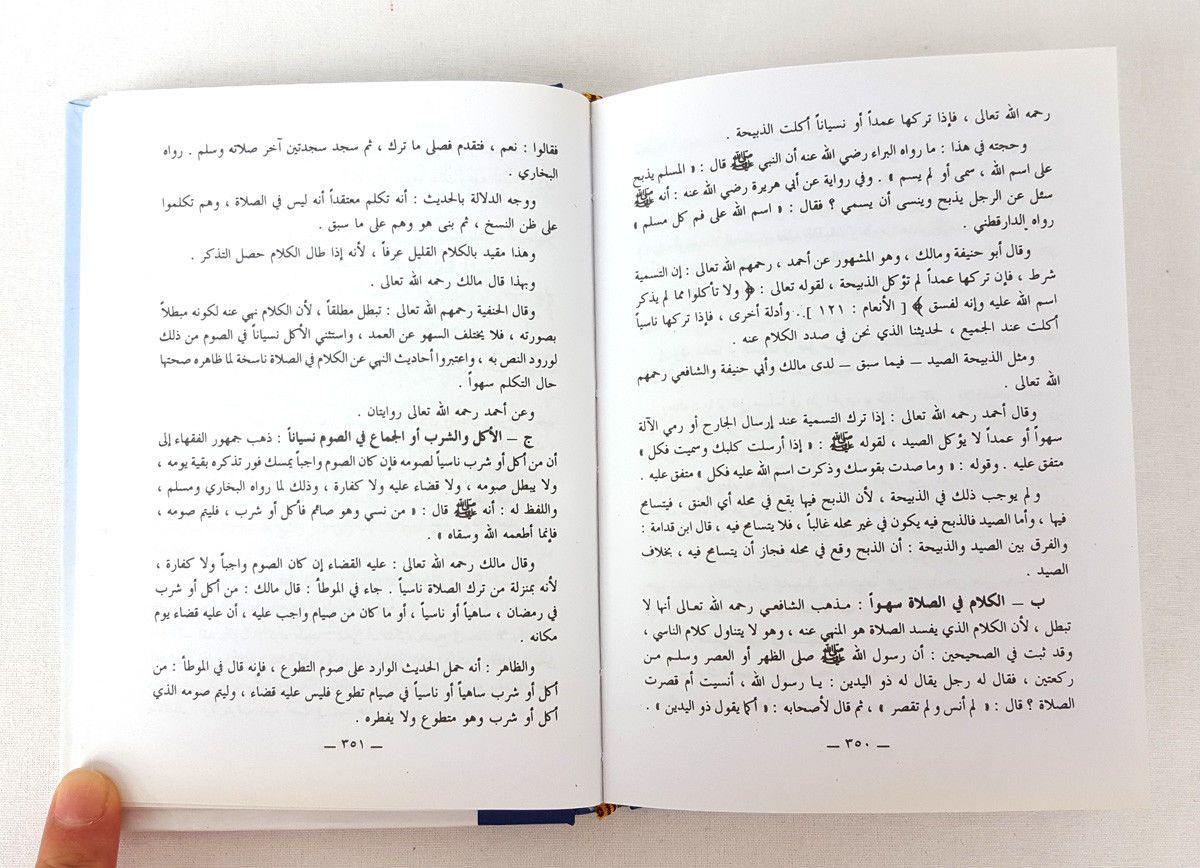 رحمه الله تعالى ، فإذا تركها عمداً أو نسياناً أكلت الذبيحة .
وحجته في هذا : ما رواه البراء رضي الله عنه أن النبي ﷺ قال : « المسلم يذبح
على اسم الله ، سمى أو لم يسم » . وفي رواية عن أبي هريرة رضي الله عنه : أنه ﷺ
سئل عن الرجل يذبح وينسى أن يسمي ؟ فقال : « اسم الله على فم كل مسلم »
رواه الدارقطني .
وقال أبو حنيفة ومالك ، وهو المشهور عن أحمد ، رحمهم الله تعالى : إن التسمية
شرط ، فإن تركها عمداً لم تؤكل الذبيحة ، لقوله تعالى : ﴿ ولا تأكلوا مما لم يذكر
اسم الله عليه وإنه لفسق ﴾ [ الأنعام : ١٢١ ] . وأدلة أخرى ، فإذا تركها ناسياً
أكلت عند الجميع ، لحديثنا الذي نحن في صدد الكلام عنه .
ومثل الذبيحة الصيد ـ فيما سبق ـ لدى مالك وأبي حنيفة والشافعي رحمهم
الله تعالى .
وقال أحمد رحمه الله تعالى : إذا ترك التسمية عند إرسال الجارح أو رمي الآلة
سهواً أو عمداً لا يؤكل الصيد ، لقوله ﷺ : « إذا أرسلت كلبك وسميت فكل »
متفق عليه . وقوله : « وما صدت بقوسك وذكرت اسم الله عليه فكل » متفق عليه .
ولم يوجب ذلك في الذبيحة ، لأن الذبح فيها يقع في محله أي العنق ، فيتسامح
فيها ، وأما الصيد فالذبح فيه يكون في غير محله غالباً ، فلا يتسامح فيه ، قال ابن قدامة :
والفرق بين الصيد والذبيحة : أن الذبح وقع في محله فجاز أن يتسامح فيه ، بخلاف
الصيد .
ب ـ الكلام في الصلاة سهواً : مذهب الشافعي رحمه الله تعالى أنها لا
تبطل ، لأن الكلام الذي يفسد الصلاة هو المنهي عنه ، وهو لا يتناول كلام الناسي ،
وقد ثبت في الصحيحين : أن رسول الله ﷺ صلى الظهر أو العصر وسلم من
ركعتين ، فقال له رجل يقال له ذو اليدين : يا رسول الله ، أنسيت أم قصرت
الصلاة ؟ قال : « لم أنس ولم تقصر » ، ثم قال لأصحابه : « أكما يقول ذو اليدين » .
ـ ٣٥٠ ـ
فقالوا : نعم ، فتقدم فصلى ما ترك ، ثم سجد سجدتين آخر صلاته وسلم . رواه
البخاري .
ووجه الدلالة بالحديث : أنه تكلم معتقداً أنه ليس في الصلاة ، وهم تكلموا
على ظن النسخ ، ثم بنى هو وهم على ما سبق .
وهذا مقيد بالكلام القليل عرفاً ، لأنه إذا طال الكلام حصل التذكر .
وبهذا قال مالك رحمه الله تعالى .
وقال الحنفية رحمهم الله تعالى : تبطل مطلقاً ، لأن الكلام نهي عنه لكونه مبطلاً
بصورته ، فلا يختلف السهو عن العمد ، واستثني الأكل نسياناً في الصوم من ذلك
لورود النص به ، واعتبروا أحاديث النهي عن الكلام في الصلاة ناسخة لما ظاهره صحتها
حال التكلم سهواً .
وعن أحمد رحمه الله تعالى روايتان .
ج ـ الأكل والشرب أو الجماع في الصوم نسياناً : ذهب جمهور الفقهاء إلى
أن من أكل أو شرب ناسياً لصومه فإن كان الصوم واجباً يمسك فور تذكره بقية يومه ،
ولا يبطل صومه ، ولا قضاء عليه ولا كفارة ، وذلك لما رواه البخاري ومسلم ،
واللفظ له : أنه ﷺ قال : « من نسي وهو صائم فأكل أو شرب ، فليتم صومه ،
فإنما أطعمه الله وسقاه » .
وقال مالك رحمه الله تعالى : عليه القضاء إن كان الصوم واجباً ولا كفارة ،
لأنه بمنزلة من ترك الصلاة ناسياً . جاء في الموطأ : قال مالك : من أكل أو شرب
في رمضان ، ساهياً أو ناسياً ، أو ما كان من صيام واجب عليه ، أن عليه قضاء يوم
مكانه .
والظاهر : أنه حمل الحديث الوارد على صوم التطوع ، فإنه قال في الموطأ : من
أكل أو شرب ساهياً أو ناسياً في صيام تطوع فليس عليه قضاء ، وليتم صومه الذي
أكل أو شرب وهو متطوع ولا يفطره .
ـ ٣٥١ ـ